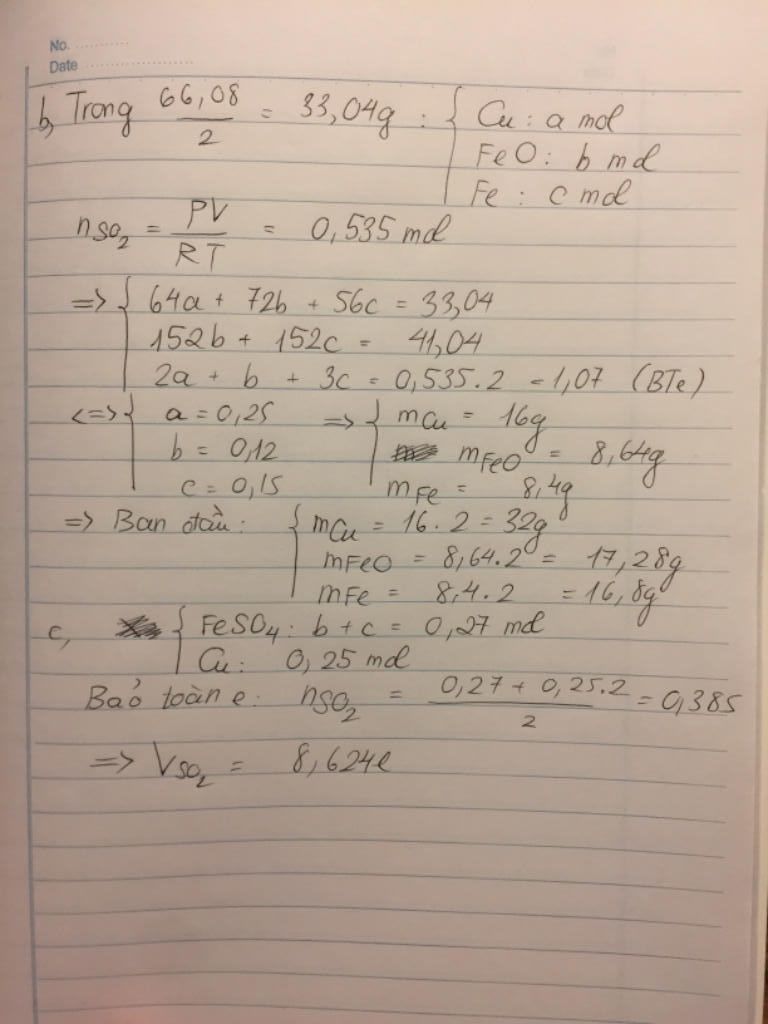 No. ............
Date ........................
b, Trong 66,08/2 = 33,04g : { Cu : a mol
FeO : b mol
Fe : c mol
nSO₂ = PV/RT = 0,535 mol
=> { 64a + 72b + 56c = 33,04
152b + 152c = 41,04
2a + b + 3c = 0,535.2 = 1,07 (BTe)
<=> { a = 0,25 => { mCu = 16g
b = 0,12 mFeO = 8,64g
c = 0,15 mFe = 8,4g
=> Ban đầu: { mCu = 16.2 = 32g
mFeO = 8,64.2 = 17,28g
mFe = 8,4.2 = 16,8g
c, { FeSO₄ : b + c = 0,27 mol
Cu : 0,25 mol
Bảo toàn e: nSO₂ = (0,27 + 0,25.2)/2 = 0,385
=> VSO₂ = 8,624l